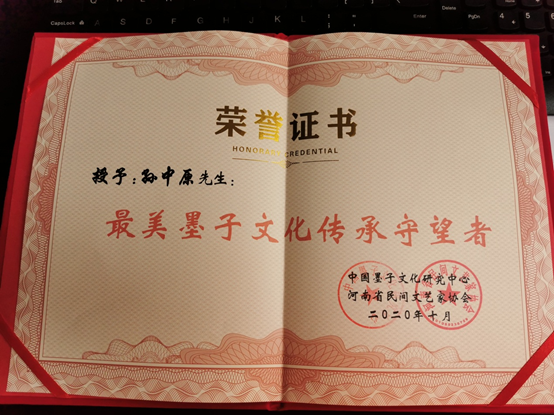 CapsLock
Enter
Delete
PgDn
荣誉证书
HONORARY CREDENTIAL
授予：孙中原先生：
最美墨子文化传承守望者
中国墨子文化研究中心
河南省民间文艺家协会
二〇二〇年十月